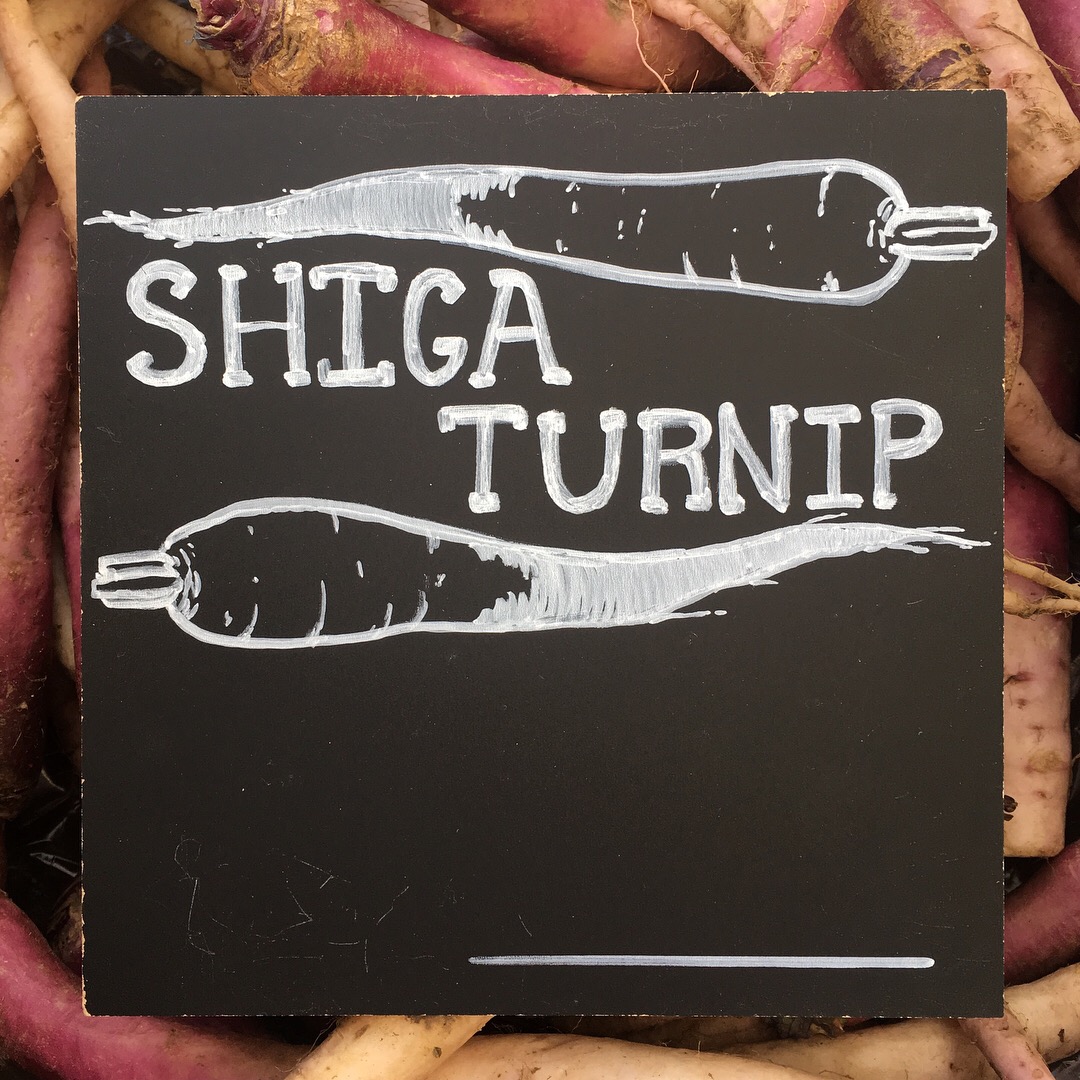 SHIGA
TURNIP